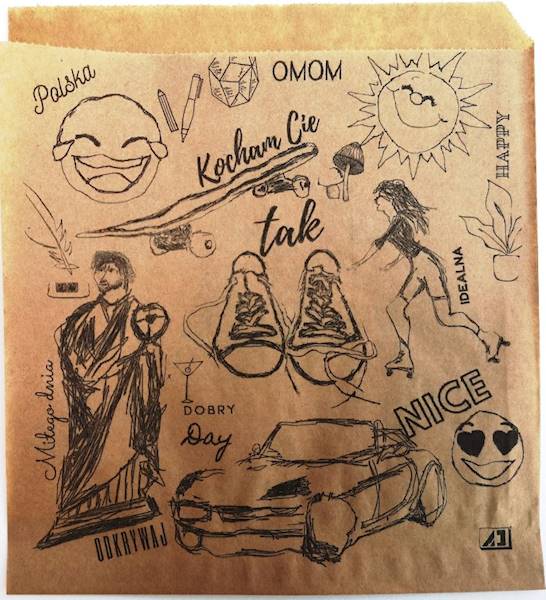 Polska
OMOM
HAPPY
Kocham Cie
tak
IDEALNA
Miłego dnia
DOBRY
Day
NICE
ODKRYWAJ